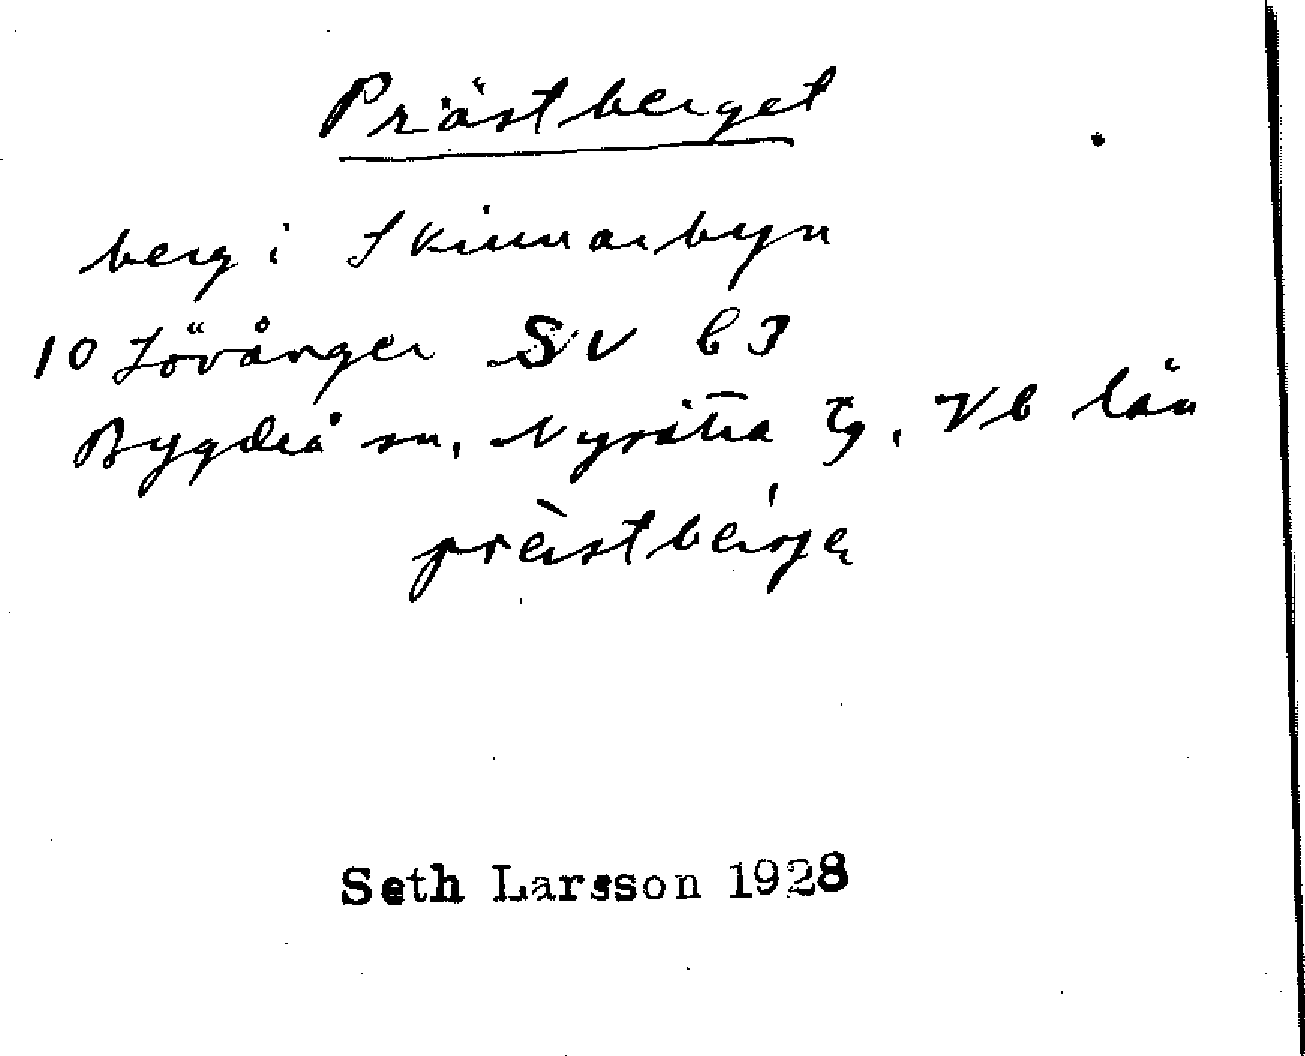 Prästberget
berg i Skinnarbyn
10 Lövånger SV b3
Bygdeå sn, Nysätra tg, Vb län
prèstbérjẹ
Seth Larsson 1928